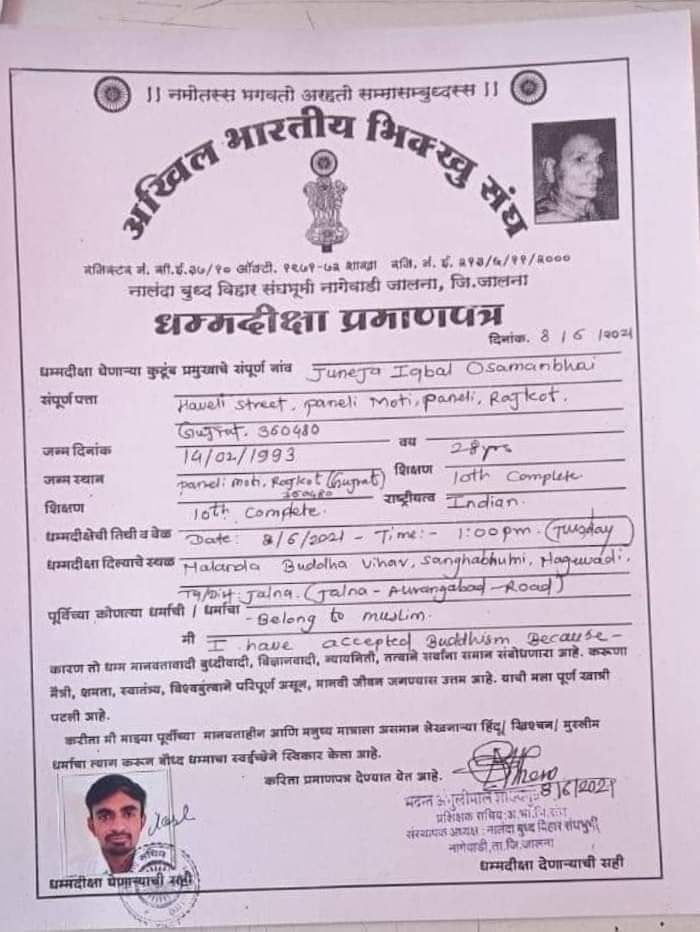 ।। नमोतस्स भगवतो अरहतो सम्मासम्बुध्दस्स ।।
अखिल भारतीय भिक्खु संघ
रजिस्टर नं. सी.ई.३७/१० ऑक्टो. १९७१-७२ शाखा रजि. नं. ई. २१३/५/११/२०००
नालंदा बुध्द विहार संघभूमी नागेवाडी जालना, जि.जालना
धम्मदीक्षा प्रमाणपत्र
दिनांक. 8 / 6 /2021
धम्मदीक्षा घेणाऱ्या कुटूंब प्रमुखाचे संपूर्ण नांव Juneja Iqbal Osamanbhai
संपूर्ण पत्ता Haveli Street, Paneli Moti, Paneli, Rajkot.
Gujrat. 360480
जन्म दिनांक 14/02/1993 वय 28yrs
जन्म स्थान Paneli Moti, Rajkot (Gujrat) 360480 शिक्षण 10th Complete
शिक्षण 10th Complete. राष्ट्रीयत्व Indian.
धम्मदीक्षेची तिथी व वेळ Date: 8/6/2021 - Time:- 1:00pm. (Tuesday)
धम्मदीक्षा दिल्याचे स्थळ Nalanda Buddha Vihar, Sanghabhumi, Nagewadi,
Tq/Dist. Jalna. (Jalna - Aurangabad - Road)
पूर्विच्या कोणत्या धर्माची / धर्माचा - Belong to muslim.
मी I have accepted Buddhism Because -
कारण तो धम्म मानवतावादी बुध्दीवादी, विज्ञानवादी, न्यायनिती, तत्वाने सर्वांना समान संबोधणारा आहे. करूणा
मैत्री, क्षमता, स्वातंत्र्य, विश्वबंधुत्वाने परिपूर्ण असून, मानवी जीवन जगण्यास उत्तम आहे. याची मला पूर्ण खात्री
पटली आहे.
करीता मी माझ्या पूर्वीच्या मानवताहीन आणि मनुष्य मात्राला असमान लेखनाऱ्या हिंदू/ ख्रिश्चन/ मुस्लीम
धर्माचा त्याग करून बौध्द धम्माचा स्वईच्छेने स्विकार केला आहे.
करिता प्रमाणपत्र देण्यात येत आहे.
8/6/2021
भदन्त अंगुलीमाल
प्रशिक्षक सचिव: अ.भा.भि.संघ
संस्थापक अध्यक्ष : नालंदा बुध्द विहार संघभुमी
नागेवाडी, ता.जि.जालना
धम्मदीक्षा घेणाऱ्याची सही
धम्मदीक्षा देणाऱ्याची सही